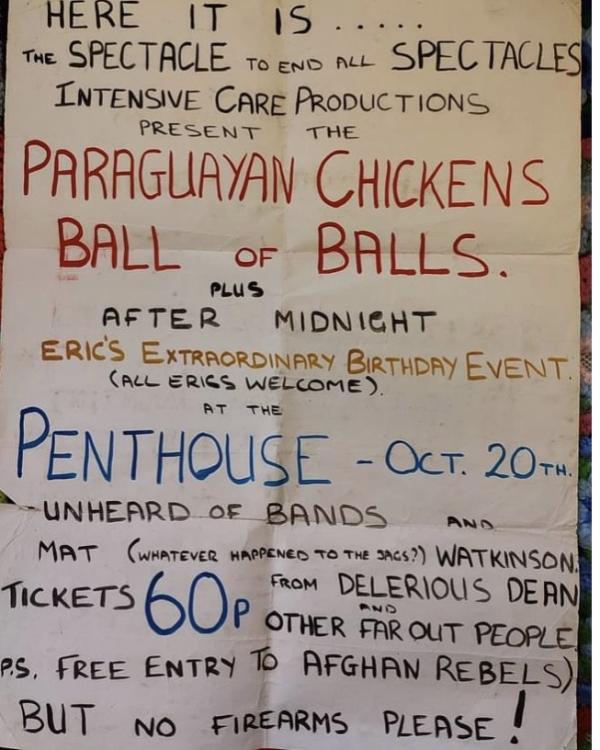 HERE IT IS .....
THE SPECTACLE TO END ALL SPECTACLES
INTENSIVE CARE PRODUCTIONS
PRESENT THE
PARAGUAYAN CHICKENS
BALL OF BALLS.
PLUS
AFTER MIDNIGHT
ERIC'S EXTRAORDINARY BIRTHDAY EVENT.
(ALL ERICS WELCOME).
AT THE
PENTHOUSE - OCT. 20TH.
UNHEARD OF BANDS AND
MAT (WHATEVER HAPPENED TO THE JAGS?) WATKINSON.
TICKETS 60P FROM DELERIOUS DEAN
AND
OTHER FAR OUT PEOPLE.
P.S. FREE ENTRY TO AFGHAN REBELS)
BUT NO FIREARMS PLEASE!